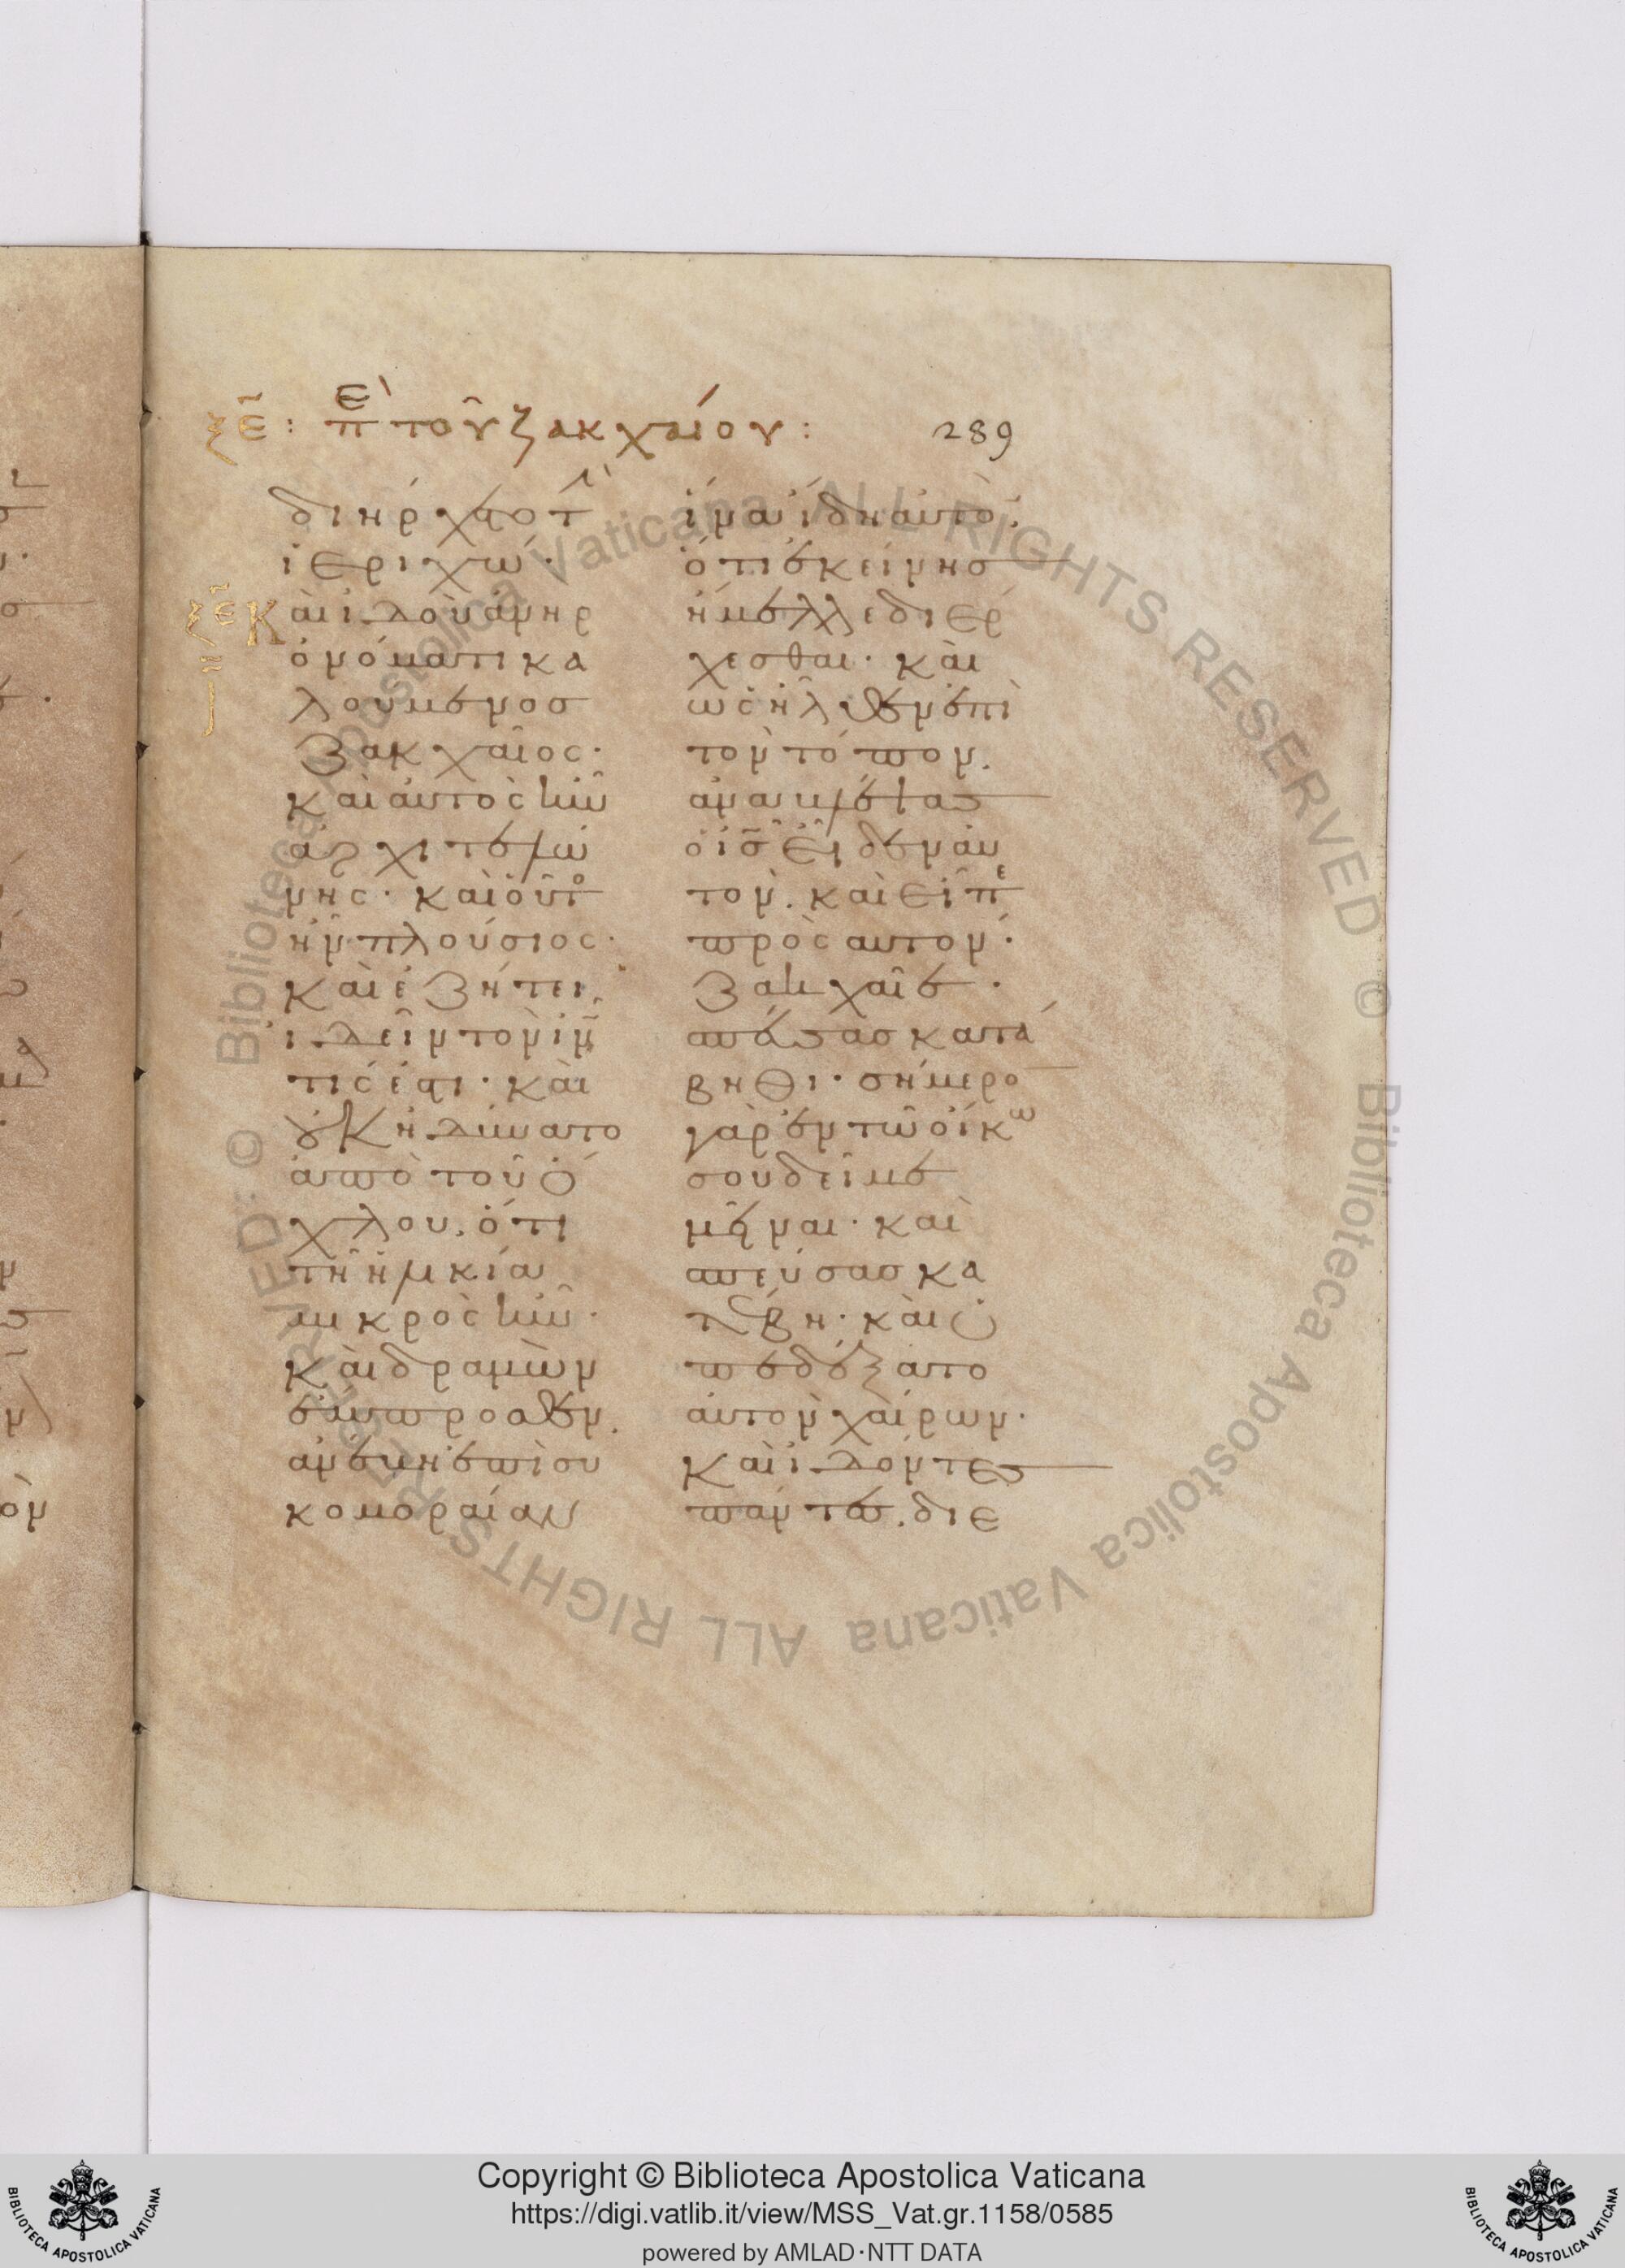 ξε: επι τοῦ ζακχαίου:
289
διήρχετο τὴν
ἱεριχώ·
ξε
Καὶ ἰδοὺ ἀνὴρ
ὀνόματι κα
λούμενοσ
ζακχαῖος·
καὶ αὐτὸς ἦν
ἀρχιτελώ
νης· καὶ οὗτο
ἦν πλούσιος·
καὶ ἐζήτει
ἰδεῖν τὸν ἰν
τίς ἐστι· καὶ
οὐκ ἠδύνατο
ἀπὸ τοῦ ὄ
χλου, ὅτι
τῆ ἡλικία
μικρὸς ἦν·
καὶ δραμὼν
ἔμπροσθεν,
ἀνέβη ἐπὶ συ
κομοραίαν
ἵνα ἴδη αὐτό·
ὅτι ἐκείνησ
ἤμελλε διέρ
χεσθαι· καὶ
ὡς ἦλθεν ἐπὶ
τὸν τόπον,
ἀναβλέψασ
ὁ ισ εἶδεν αὐ
τόν, καὶ εἶπε
πρὸς αυτον·
ζακχαῖε·
σπεύσασ κατά
βηθι· σήμερο
γὰρ ἐν τῶ οἴκω
σου δεῖ με
μεῖναι· καὶ
σπεύσασ κα
τέβη· καὶ ὑ
πεδέξατο
αὐτὸν χαίρων·
καὶ ἰδόντεσ
πάντεσ, διε
Copyright © Biblioteca Apostolica Vaticana
https://digi.vatlib.it/view/MSS_Vat.gr.1158/0585
powered by AMLAD·NTT DATA
BIBLIOTECA APOSTOLICA VATICANA
BIBLIOTECA APOSTOLICA VATICANA